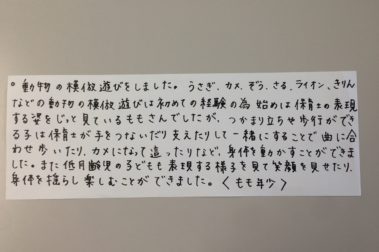 ○ 動物の模倣遊びをしました。うさぎ、カメ、ぞう、さる、ライオン、きりん
などの動物の模倣遊びは初めての経験の為 始めは保育士の表現
する姿をじっと見ているももさんでしたが、つかまり立ちや歩行ができ
る子は保育士が手をつないだり支えたりして一緒にすることで曲に合
わせ歩いたり、カメになって這ったりなど、身体を動かすことができま
した。また低月齢児の子どもも表現する様子を見て笑顔を見せたり、
身体を揺らし楽しむことができました。〈もも年少〉